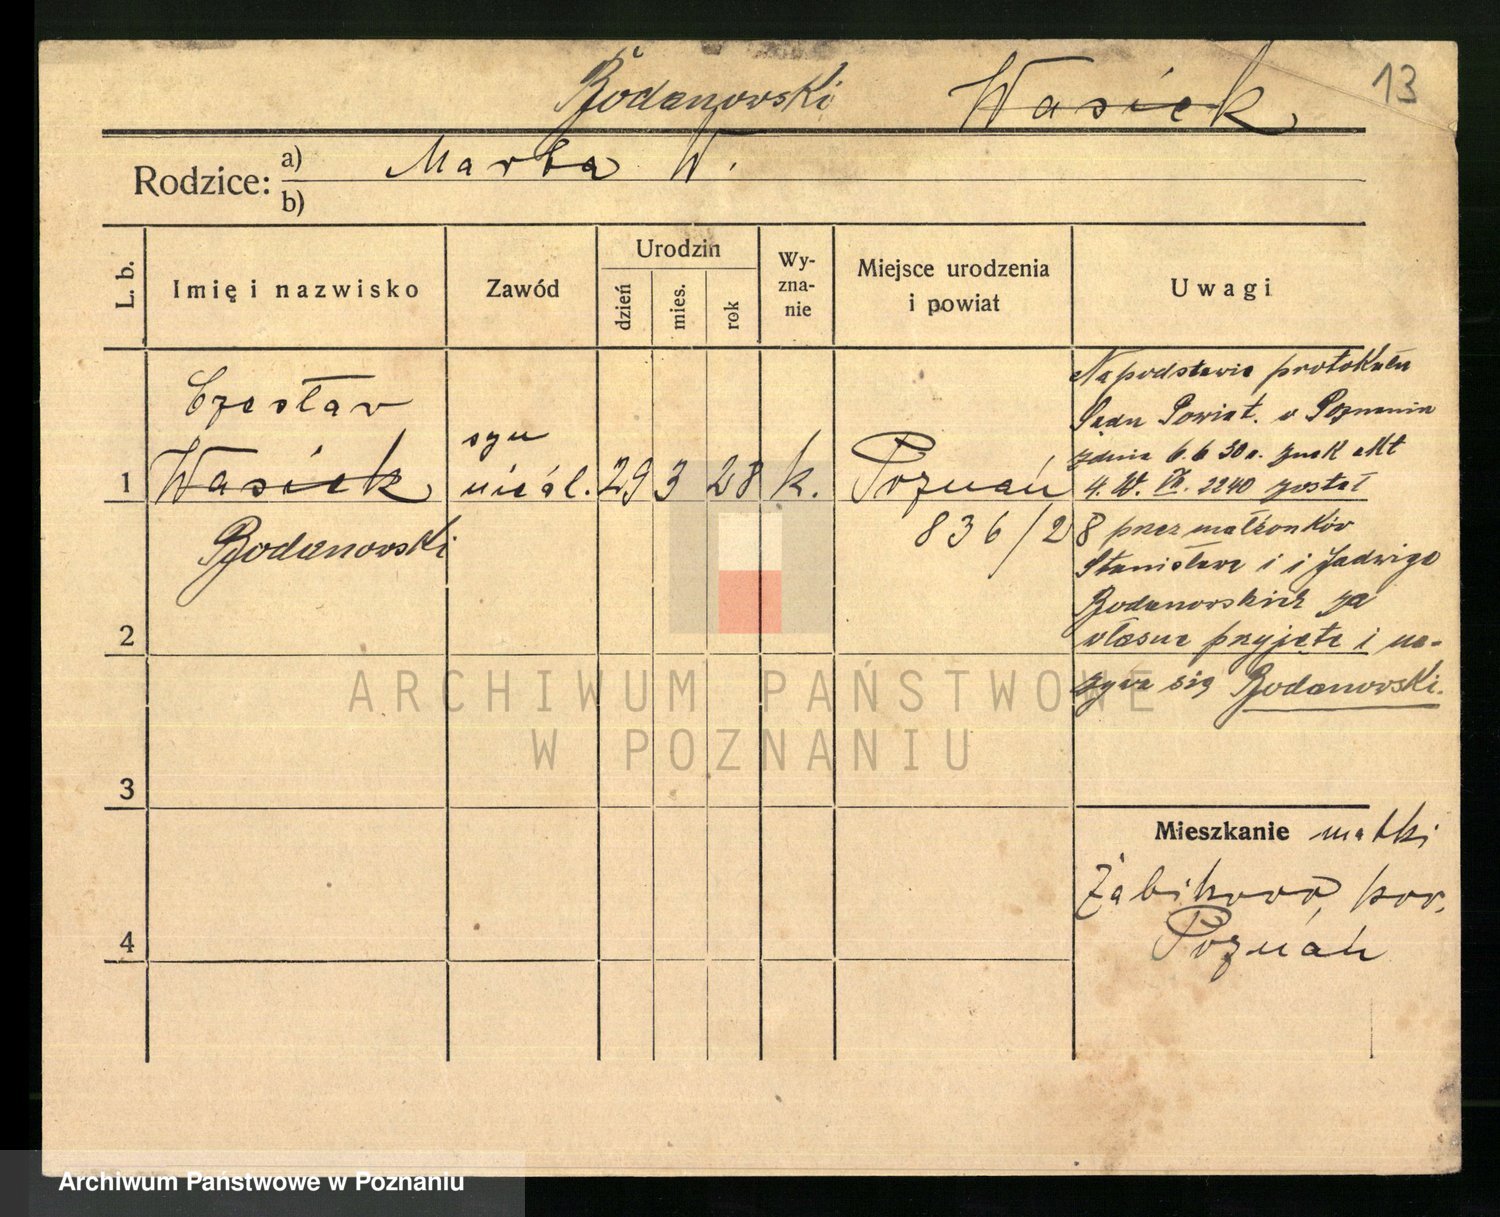 Bodanowski Wasiek 13
Rodzice: a) Marta W.
b)
L. b. Imię i nazwisko Zawód Urodzin dzień mies. rok Wyznanie Miejsce urodzenia i powiat Uwagi
Czesław
1 Wasiek syn nieśl. 29 3 28 k. Poznań
836/28
Bodanowski
2
3
4
Na podstawie protokułu
Sądu Powiat. w Poznaniu
z dnia 6.6 30r. znak akt
4. W. VII. 2240 został
przez małżonków
Stanisława i i Jadwigę
Bodanowskich za
własne przyjęte i na-
zywa się Bodanowski.
Mieszkanie matki
Żabikowo, pow.
Poznań
ARCHIWUM PAŃSTWOWE
W POZNANIU
Archiwum Państwowe w Poznaniu